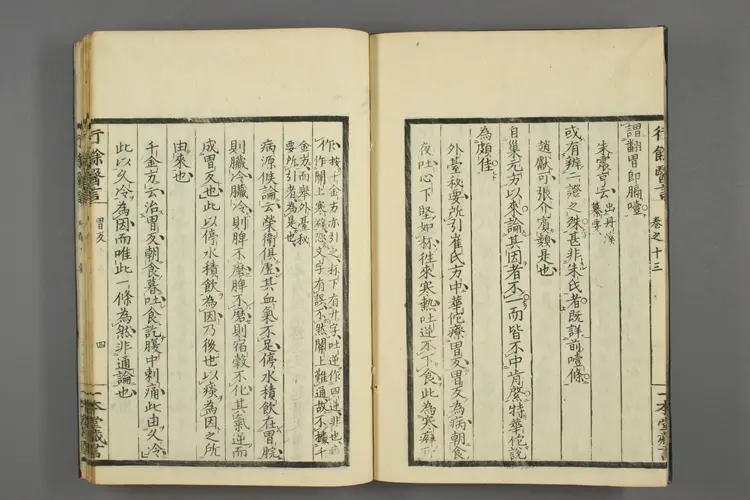 行餘醫言 卷之十三
謂翻胃即膈噎
朱震亨云 出丹溪
纂要
或有辨二證之殊甚非朱氏者既詳前噎條
趙獻可張介賓類是也
自巢元方以來論其因者不一而皆不中肯綮特華佗說
為頗佳
外臺秘要所引崔氏方中華佗療胃反胃反為病朝食
夜吐心下堅如杯往來寒熱吐逆不下食此為寒癖所
作 按千金方亦引之杯下有升字吐逆作四逆非也
作作關上寒澼恐文字有誤不然關上難通故不據千
金方而舉外臺秘
要所引者為是也
病源候論云榮衛俱虛其血氣不足停水積飲在胃脘
則臟冷臟冷則脾不磨脾不磨則宿穀不化其氣逆而
成胃反也此以停水積飲為因乃後世以痰為因之所
由來也
千金方云治胃反朝食暮吐食訖腹中刺痛此由久冷
此以久冷為因而唯此一條為然非通論也
行餘醫言 胃反 四
一本堂藏書